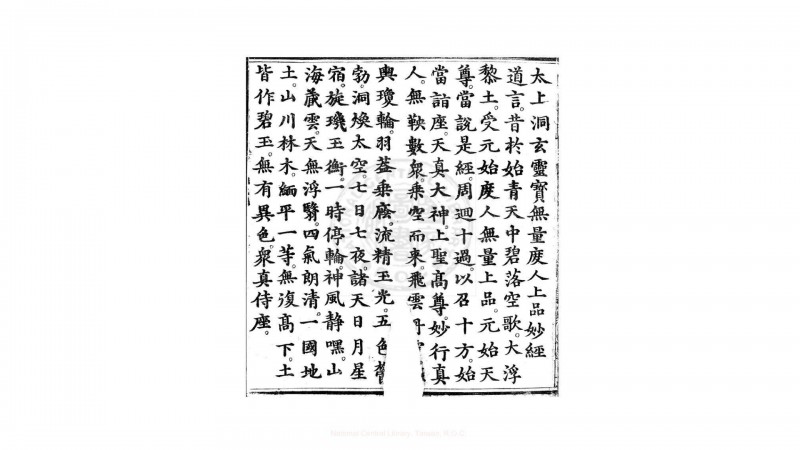 太上洞玄靈寶無量度人上品妙經
道言。昔於始青天中碧落空歌。大浮
黎土。受元始度人無量上品。元始天
尊。當說是經。周迴十過。以召十方。始
當詣座。天真大神。上聖高尊。妙行真
人。無鞅數衆。乘空而來。飛雲
輿瓊輪。羽蓋乘廕。流精玉光。五色鬱
勃。洞煥太空。七日七夜。諸天日月星
宿。旋璣玉衡。一時停輪。神風靜嘿。山
海藏雲。天無浮翳。四氣朗清。一國地
土。山川林木。緬平一等。無復高下。土
皆作碧玉。無有異色。衆真侍座。
National Central Library, Taiwan, R.O.C